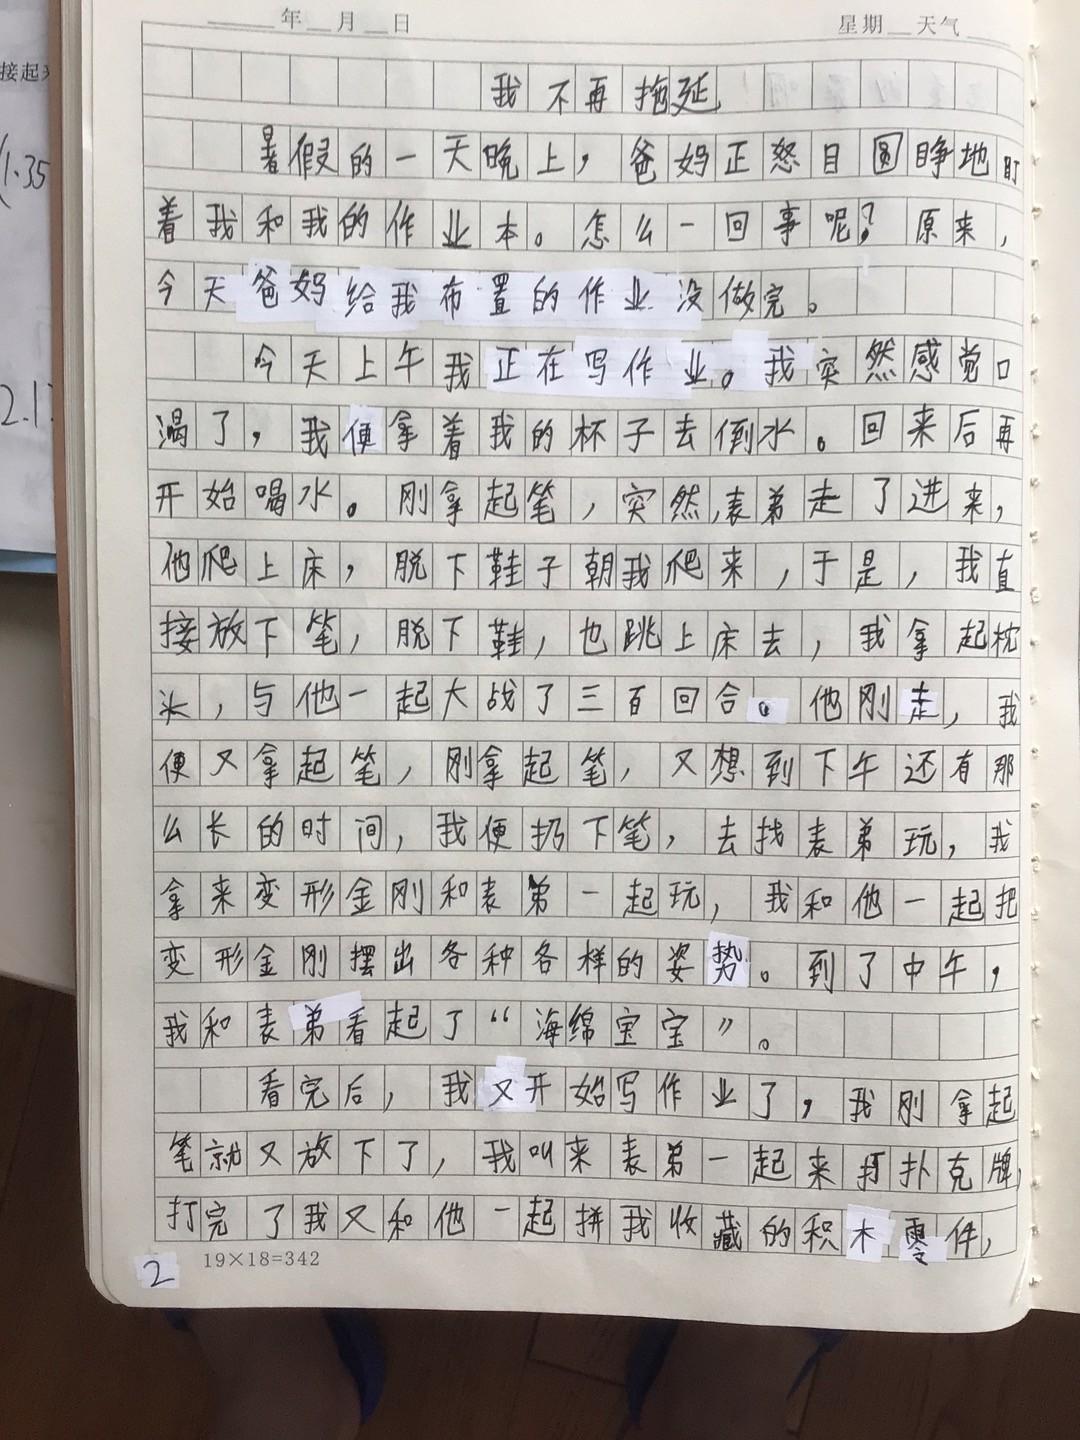 年 月 日 星期 天气
我不再拖延
暑假的一天晚上，爸妈正怒目圆睁地盯
着我和我的作业本。怎么一回事呢？原来，
今天爸妈给我布置的作业没做完。
今天上午我正在写作业。我突然感觉口
渴了，我便拿着我的杯子去倒水。回来后再
开始喝水。刚拿起笔，突然，表弟走了进来，
他爬上床，脱下鞋子朝我爬来，于是，我直
接放下笔，脱下鞋，也跳上床去，我拿起枕
头，与他一起大战了三百回合。他刚走，我
便又拿起笔，刚拿起笔，又想到下午还有那
么长的时间，我便扔下笔，去找表弟玩，我
拿来变形金刚和表弟一起玩，我和他一起把
变形金刚摆出各种各样的姿势。到了中午，
我和表弟看起了“海绵宝宝”。
看完后，我又开始写作业了，我刚拿起
笔就又放下了，我叫来表弟一起来打扑克牌，
打完了我又和他一起拼我收藏的积木零件，
2 19×18=342
接起来
(1.35
2.1